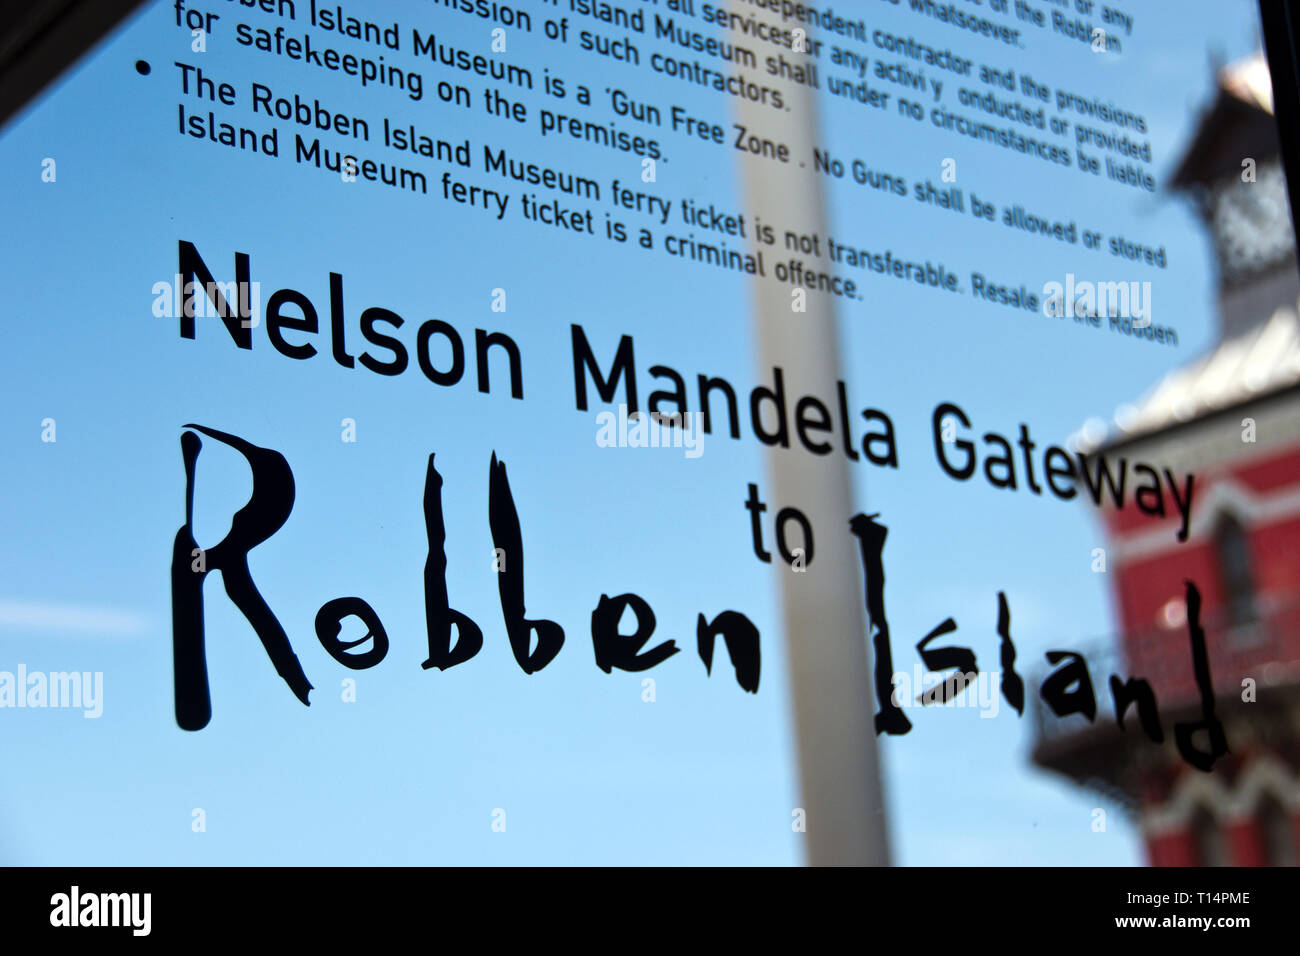 or any
of the Robben
whatsoever.
independent contractor and the provisions
of all services or any activi y onducted or provided
Island Museum shall under no circumstances be liable
mission of such contractors.
ben Island Museum is a 'Gun Free Zone . No Guns shall be allowed or stored
for safekeeping on the premises.
• The Robben Island Museum ferry ticket is not transferable. Resale of the Robben
Island Museum ferry ticket is a criminal offence.
Nelson Mandela Gateway
to
Robben Island
alamy
Image ID: T14PME
www.alamy.com